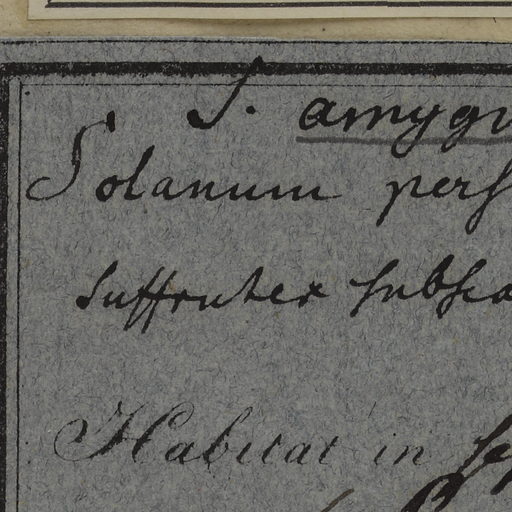 S. amyg
Solanum pers
suffrutex subsca
Habitat in sep